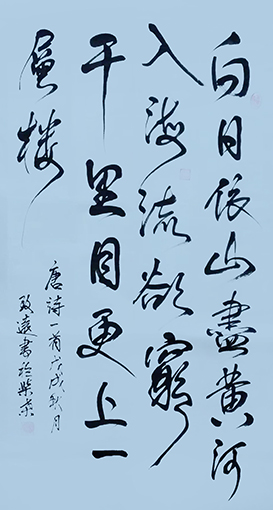 白日依山盡黄河
入海流欲窮
千里目更上一
層楼
唐詩一首戊戌秋月
致遠書於紫京